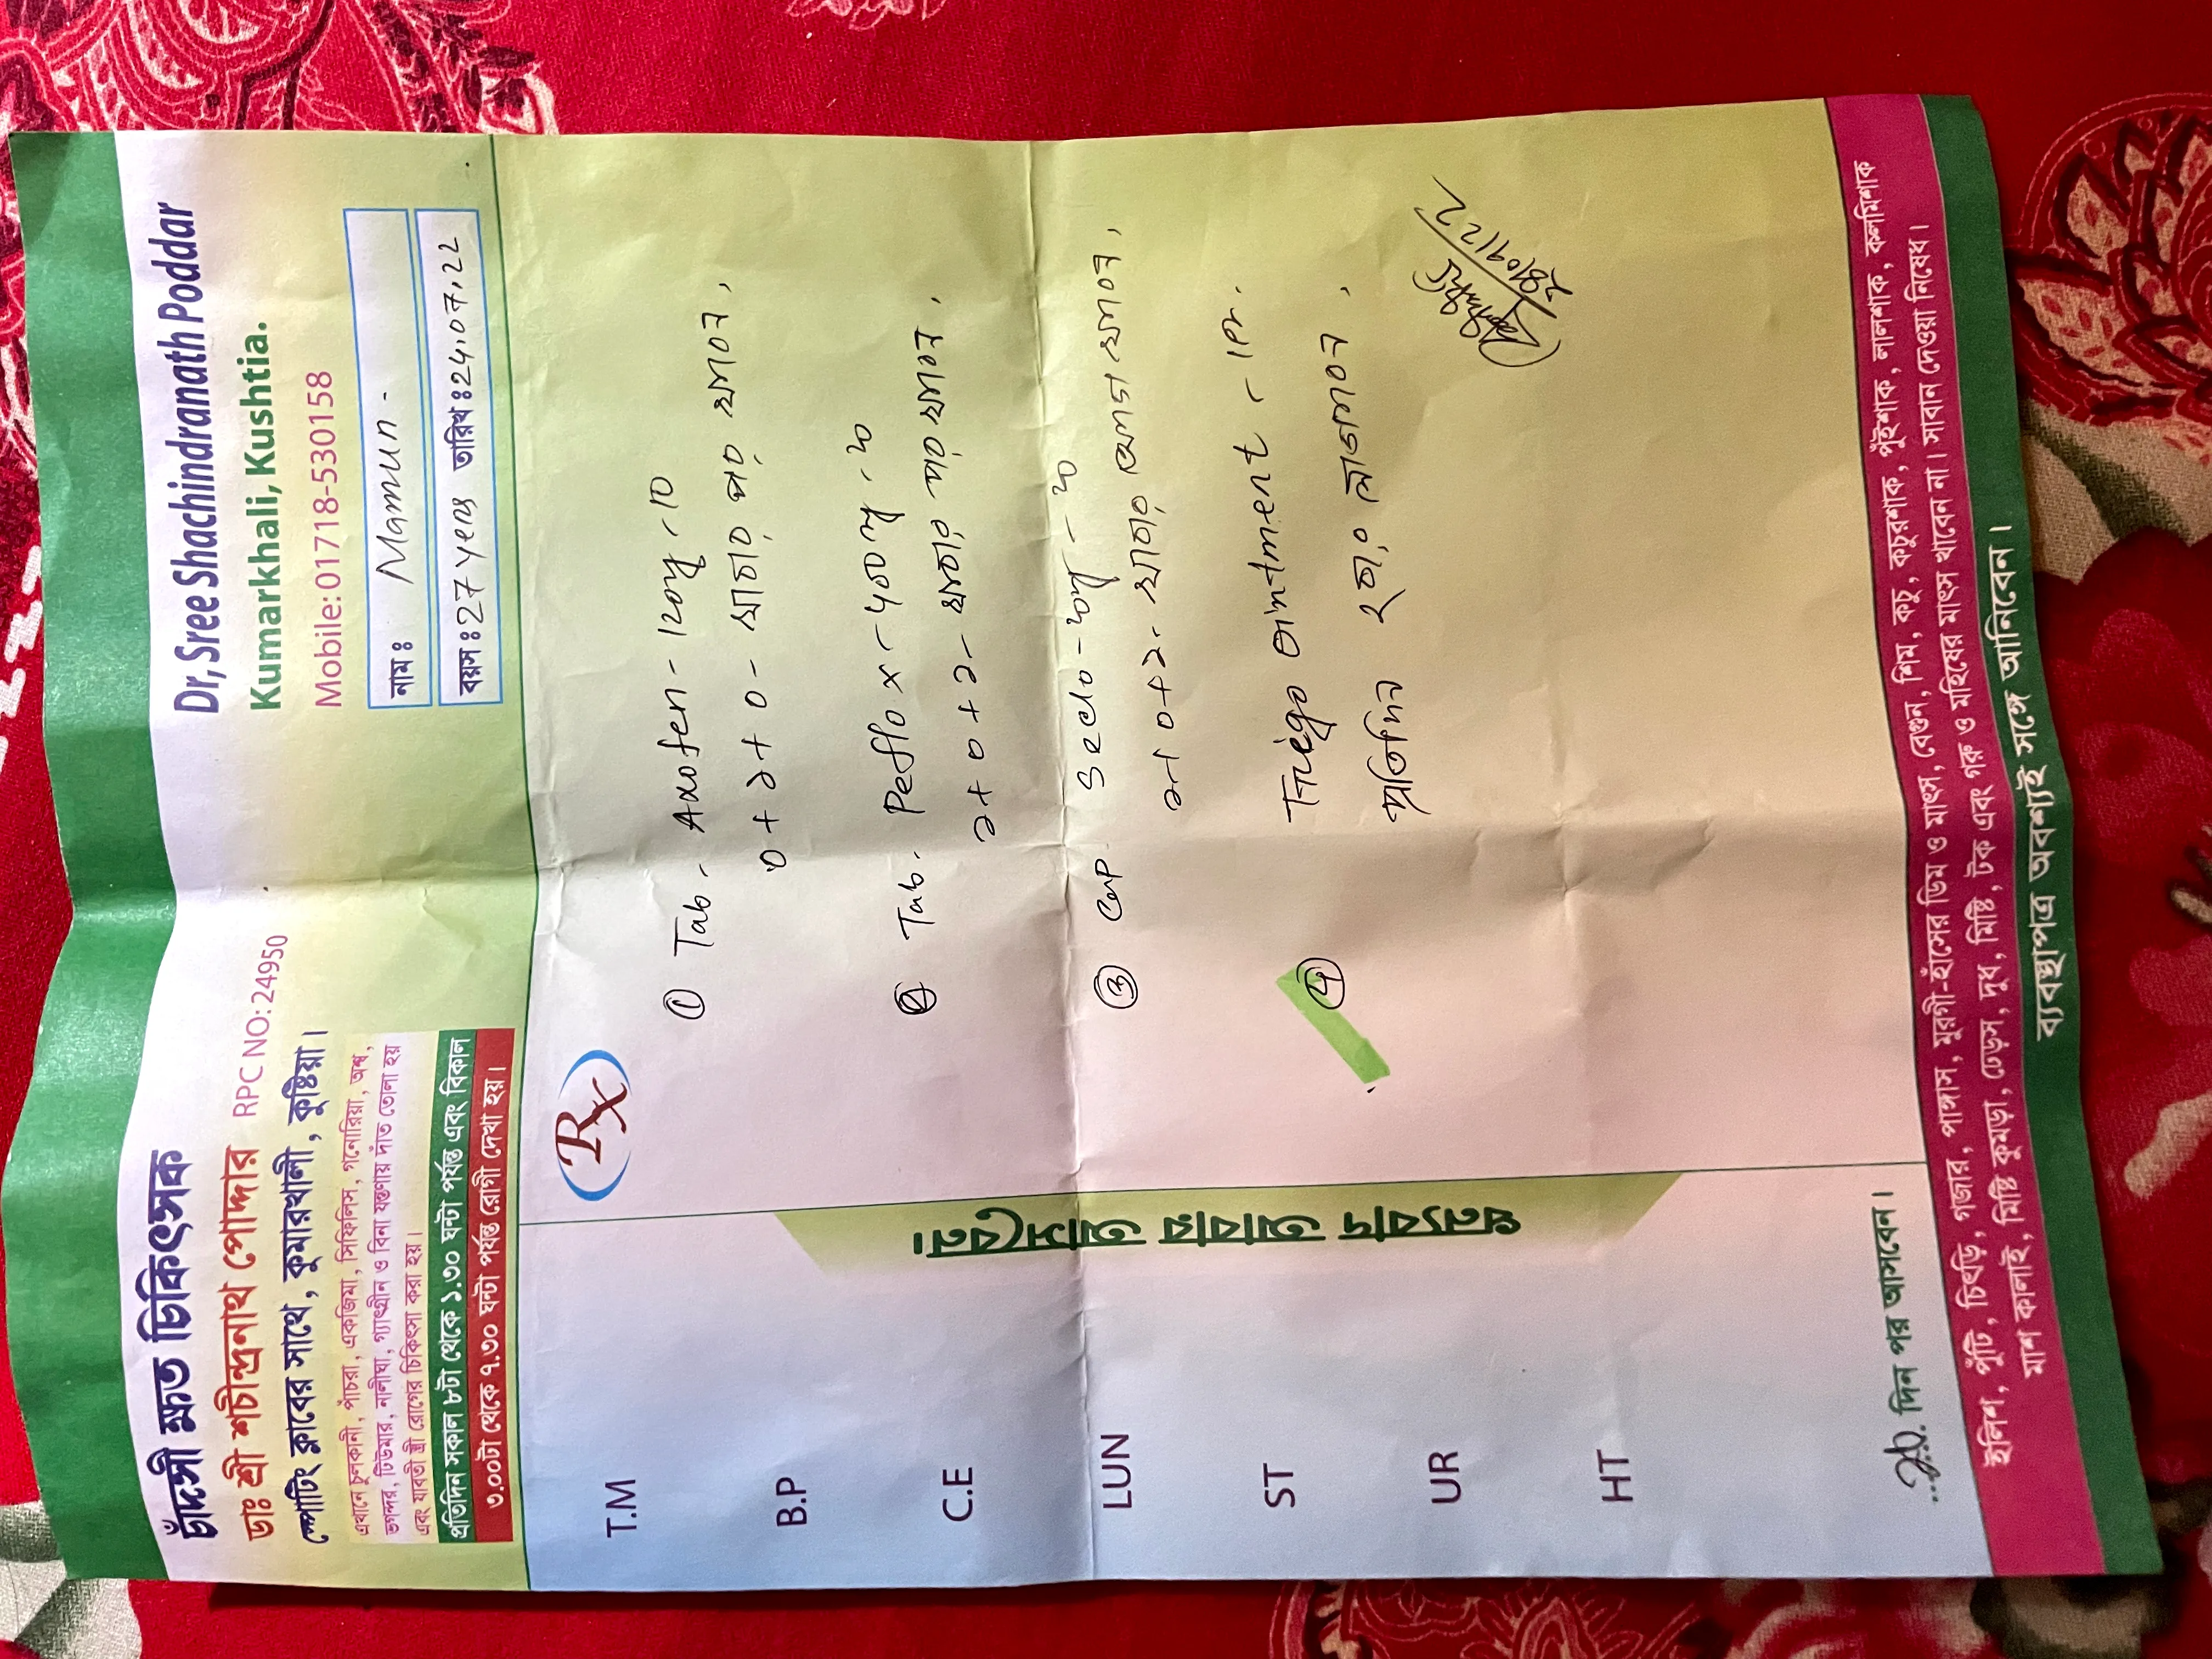 চাঁদসী ক্ষত চিকিৎসক
ডাঃ শ্রী শচীন্দ্রনাথ পোদ্দার RPC NO:24950
স্পোর্টিং ক্লাবের সাথে, কুমারখালী, কুষ্টিয়া।
এখানে চুলকানী, পাঁচরা, একজিমা, সিফিলিস, গনোরিয়া, অর্শ্ব,
ভগন্দর, টিউমার, নালীঘা, গ্যাংগ্রীন ও বিনা যন্ত্রণায় দাঁত তোলা হয়
এবং যাবতী স্ত্রী রোগের চিকিৎসা করা হয়।
প্রতিদিন সকাল ৮টা থেকে ১.৩০ ঘন্টা পর্যন্ত এবং বিকাল
৩.০০টা থেকে ৭.৩০ ঘন্টা পর্যন্ত রোগী দেখা হয়।
Dr, Sree Shachindranath Poddar
Kumarkhali, Kushtia.
Mobile: 01718-530158
নাম: Mamun -
বয়স: 27 years তারিখ: 24.07.22
T.M
B.P
C.E
LUN
ST
UR
HT
ধন্যবাদ আবার আসবেন।
Rx
① Tab. Axofen - 120mg - 10
0 + ১ + 0 -
② Tab. Peflox - 400mg -
১ + 0 + ১ -
③ Cap. Seclo -
১ + 0 + ১ -
④ Triego Ointment - 1Pc.
প্রতিদিন
দিন পর আসবেন।
ইলিশ, পুঁটি, চিংড়ি, গজার, পাঙ্গাস, মুরগী-হাঁসের ডিম ও মাংস, বেগুন, শিম, কচু, কচুরশাক, পুঁইশাক, লালশাক, কলমিশাক
মাশ কালাই, মিষ্টি কুমড়া, ঢেড়স, দুধ, মিষ্টি, টক এবং গরু ও মহিষের মাংস খাবেন না। সাবান দেওয়া নিষেধ।
ব্যবস্থাপত্র অবশ্যই সঙ্গে আনিবেন।